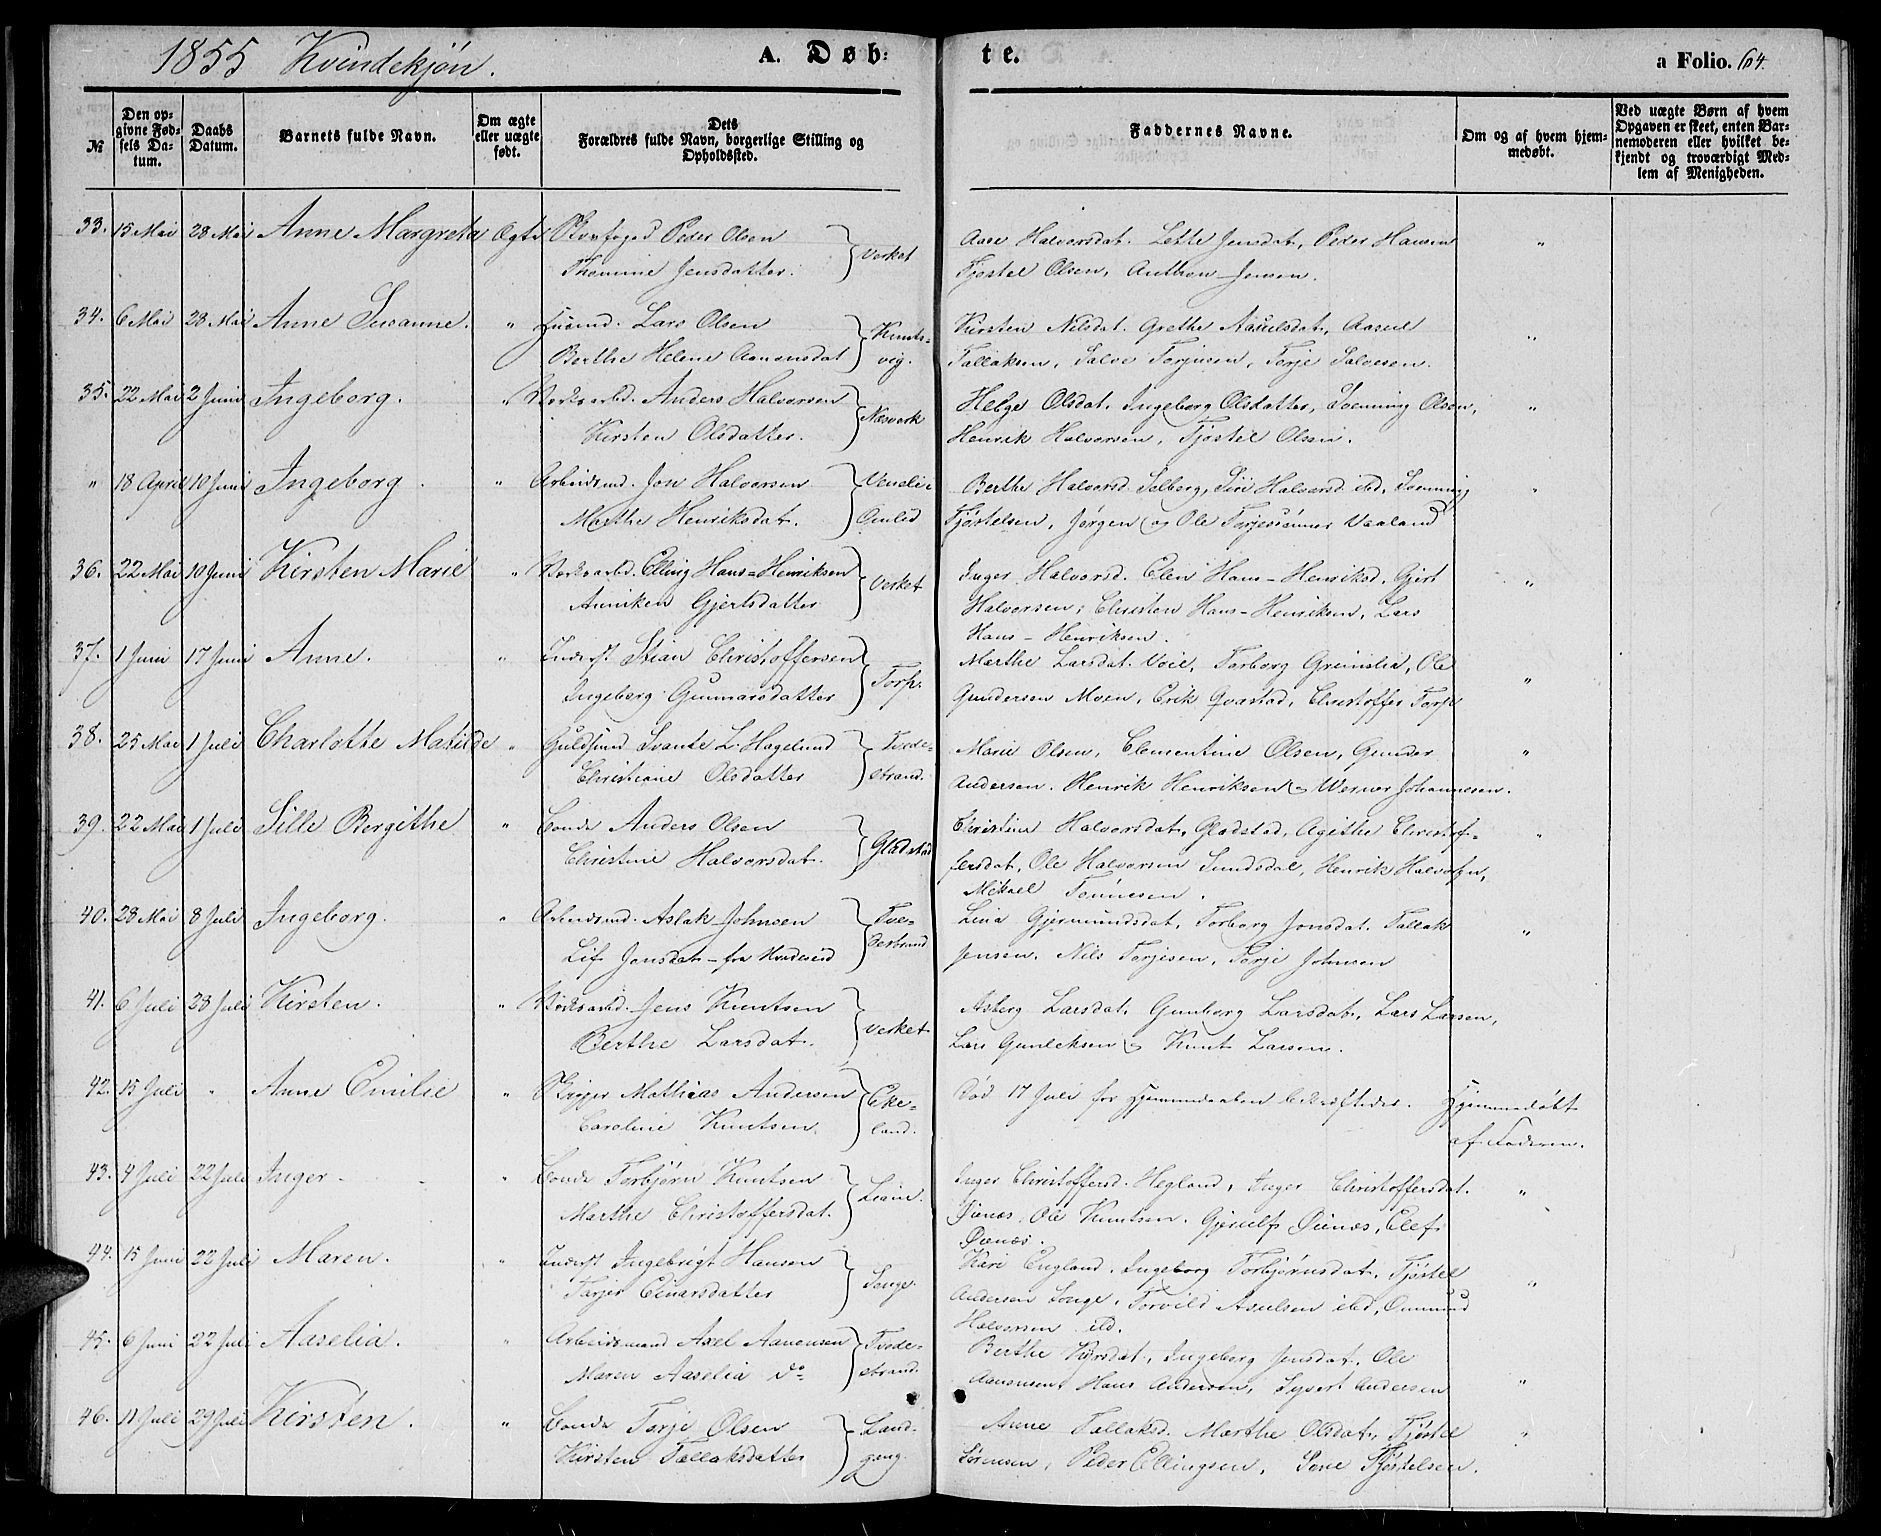 1855 Kvindekjön. A. Døb: te. a Folio. 64.
№ Den opgivne Fødsels Datum. Daabs Datum. Barnets fulde Navn. Om ægte eller uægte født. Dets Forældres fulde Navn, borgerlige Stilling og Opholdssted. Faddernes Navne. Om og af hvem hjemmedøbt. Ved uægte Børn af hvem Opgaven er skeet, enten Barnemoderen eller hvilket bekjendt og troværdigt Medlem af Menigheden.
33. 15 Mai 28 Mai Anne Margrete Ægte Peder Olsen
Thomine Jensdatter. } Verket
Aase Halvorsdat. Lette Jensdat, Peder Hansen "
Tjöstel Olsen, Anthon Jensen.
34. 6 Mai 28 Mai Anne Susanne. " Huusmd. Lars Olsen
Berthe Helene Aanonsdat } Knuts-
vig.
Kirsten Nilsdat. Grethe Aasulsdat, Aasul "
Tallaksen, Salve Torjusen, Torje Salvesen.
35. 22 Mai 2 Juni Ingeborg. " Verksarbd. Anders Halvorsen
Kirsten Olsdatter. } Næsverk
Helge Olsdat, Ingeborg Olsdatter, Svenning Olsen, "
Henrik Halvorsen, Tjöstel Olsen.
" 18 April 10 Juni Ingeborg. " Arbeidsmd. Jon Halvorsen
Marthe Henriksdat. }
Berthe Halvorsd. Selberg, Siri Halvorsd. ibd, Svenning "
Tjöstelsen, Jørgen og Ole Torjesönner Vaaland
36. 22 Mai 10 Juni Kirsten Marie " Verksarbd. Elling Hans-Henriksen
Anniken Gjertsdatter } Verket
Inger Halvorsd. Elen Hans-Henriksd, Gjert "
Halvorsen, Christen Hans-Henriksen, Lars
Hans-Henriksen.
37. 1 Juni 17 Juni Anne. " Inderst Stian Christoffersen
Ingeborg Gunnarsdatter } Torp.
Marthe Larsdat. Voie, Torborg Greinslia, Ole "
Gundersen Moen, Erik Qvastad, Christoffer Torp
38. 25 Mai 1 Juli Charlotte Matilde " Guldsmd Svante L. Hagelund
Christiane Olsdatter } Tvede-
strand.
Marie Olsen, Clementine Olsen, Gunder "
Andersen. Henrik Henriksen og Werner Johannesen.
39. 22 Mai 1 Juli Sille Bergithe " Bonde Anders Olsen
Christine Halvorsdat. } Gladstad
Christine Halvorsdat, Gladstad, Agithe Christof- "
fersdat, Ole Halvorsen Sundsdal, Henrik Halvorsen,
Mikael Tønnesen.
40. 28 Mai 8 Juli Ingeborg. " Arbeidsmd. Aslak Johnsen
Lif Jonsdat - fra Hvideseid } Tve-
destrand
Lina Gjermundsdat, Torborg Jonsdat. Tallak "
Jensen, Nils Torjesen, Torje Johnsen
41. 6 Juli 28 Juli Kirsten. " Verksarbd. Jens Knutsen
Berthe Larsdat. } Verket
Asberg Larsdat, Gunborg Larsdat, Lars Larsen,
Lars Gunleksen og Knut Larsen.
42. 15 Juli " Anne Emilie " Skipper Mathias Andersen
Caroline Knutsen } Eke-
land.
Död 17 Juli før Hjemmedaaben bekræftedes. Hjemmedöbt
af Faderen.
43. 4 Juli 22 Juli Inger. " Bonde Torbjörn Knutsen
Marthe Christoffersdat. } Liane.
Inger Christoffersd. Hegland, Inger Christoffersdat. "
Öienæs, Ole Knutsen. Gjerulf Öienæs, Elef
Öienæs.
44. 15 Juni 22 Juli Maren. " Inderst Ingebrigt Hansen
Tarjer Einarsdatter } Songe.
Kari England, Ingeborg Torbjörnsdat, Tjöstel "
Andersen Songe, Torvild Asulsen ibd, Ommund
Halvorsen ibd.
45. 6 Juni 22 Juli Aaselia. " Arbeidsmand Axel Aanonsen
Maren Aaselia do } Tvede-
strand.
Berthe Kyrsdat, Ingeborg Jensdat, Ole "
Aanonsen, Hans Andersen, Syvert Andersen
46. 11 Juli 29 Juli Kirsten. " Bonde Torje Olsen
Kirsten Tallaksdatter } Land-
gang.
Anne Tallaksd. Marthe Olsdat, Tjöstel "
Sörensen, Peder Ellingsen, Sone Tjöstelsen.